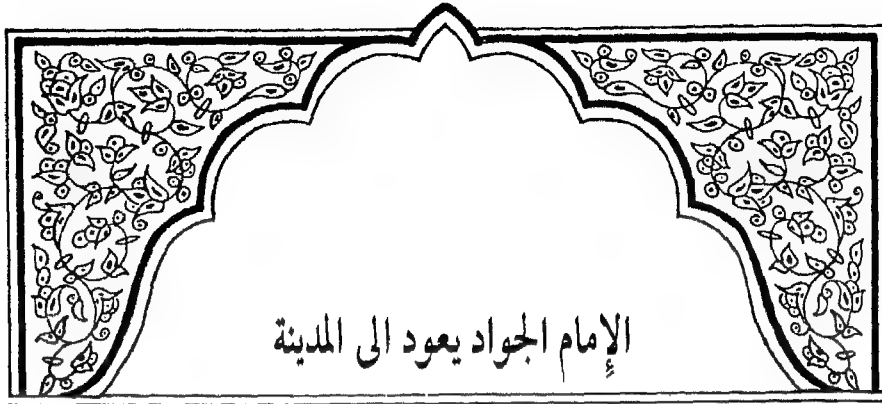 الإمام الجواد يعود الى المدينة